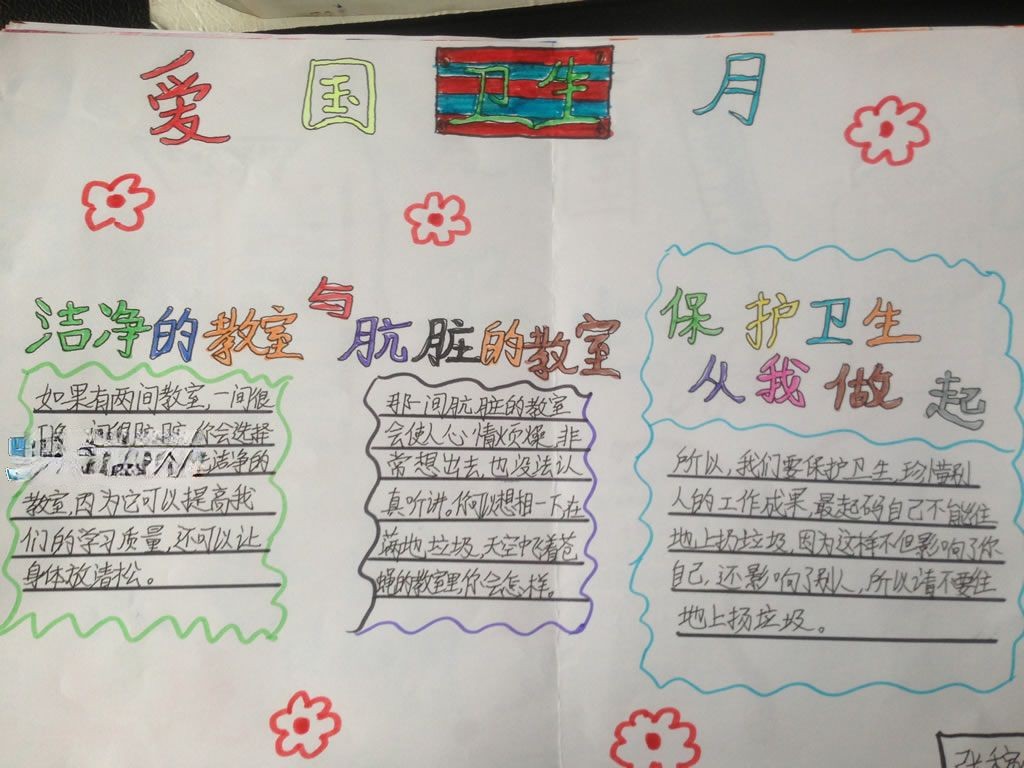 爱国卫生月
洁净的教室与肮脏的教室
如果有两间教室,一间很
你会选择
洁净的
教室,因为它可以提高我
们的学习质量,还可以让
身体放清松。
那一间肮脏的教室
会使人心情烦燥,非
常想出去,也没法认
真听讲。你可以想相一下在
满地垃圾,天空中飞着苍
蝇的教室里你会怎样。
保护卫生
从我做起
所以,我们要保护卫生,珍惜别
人的工作成果,最起码自己不能往
地上扬垃圾,因为这样不但影响了你
自己,还影响了别人,所以请不要往
地上扬垃圾。
张